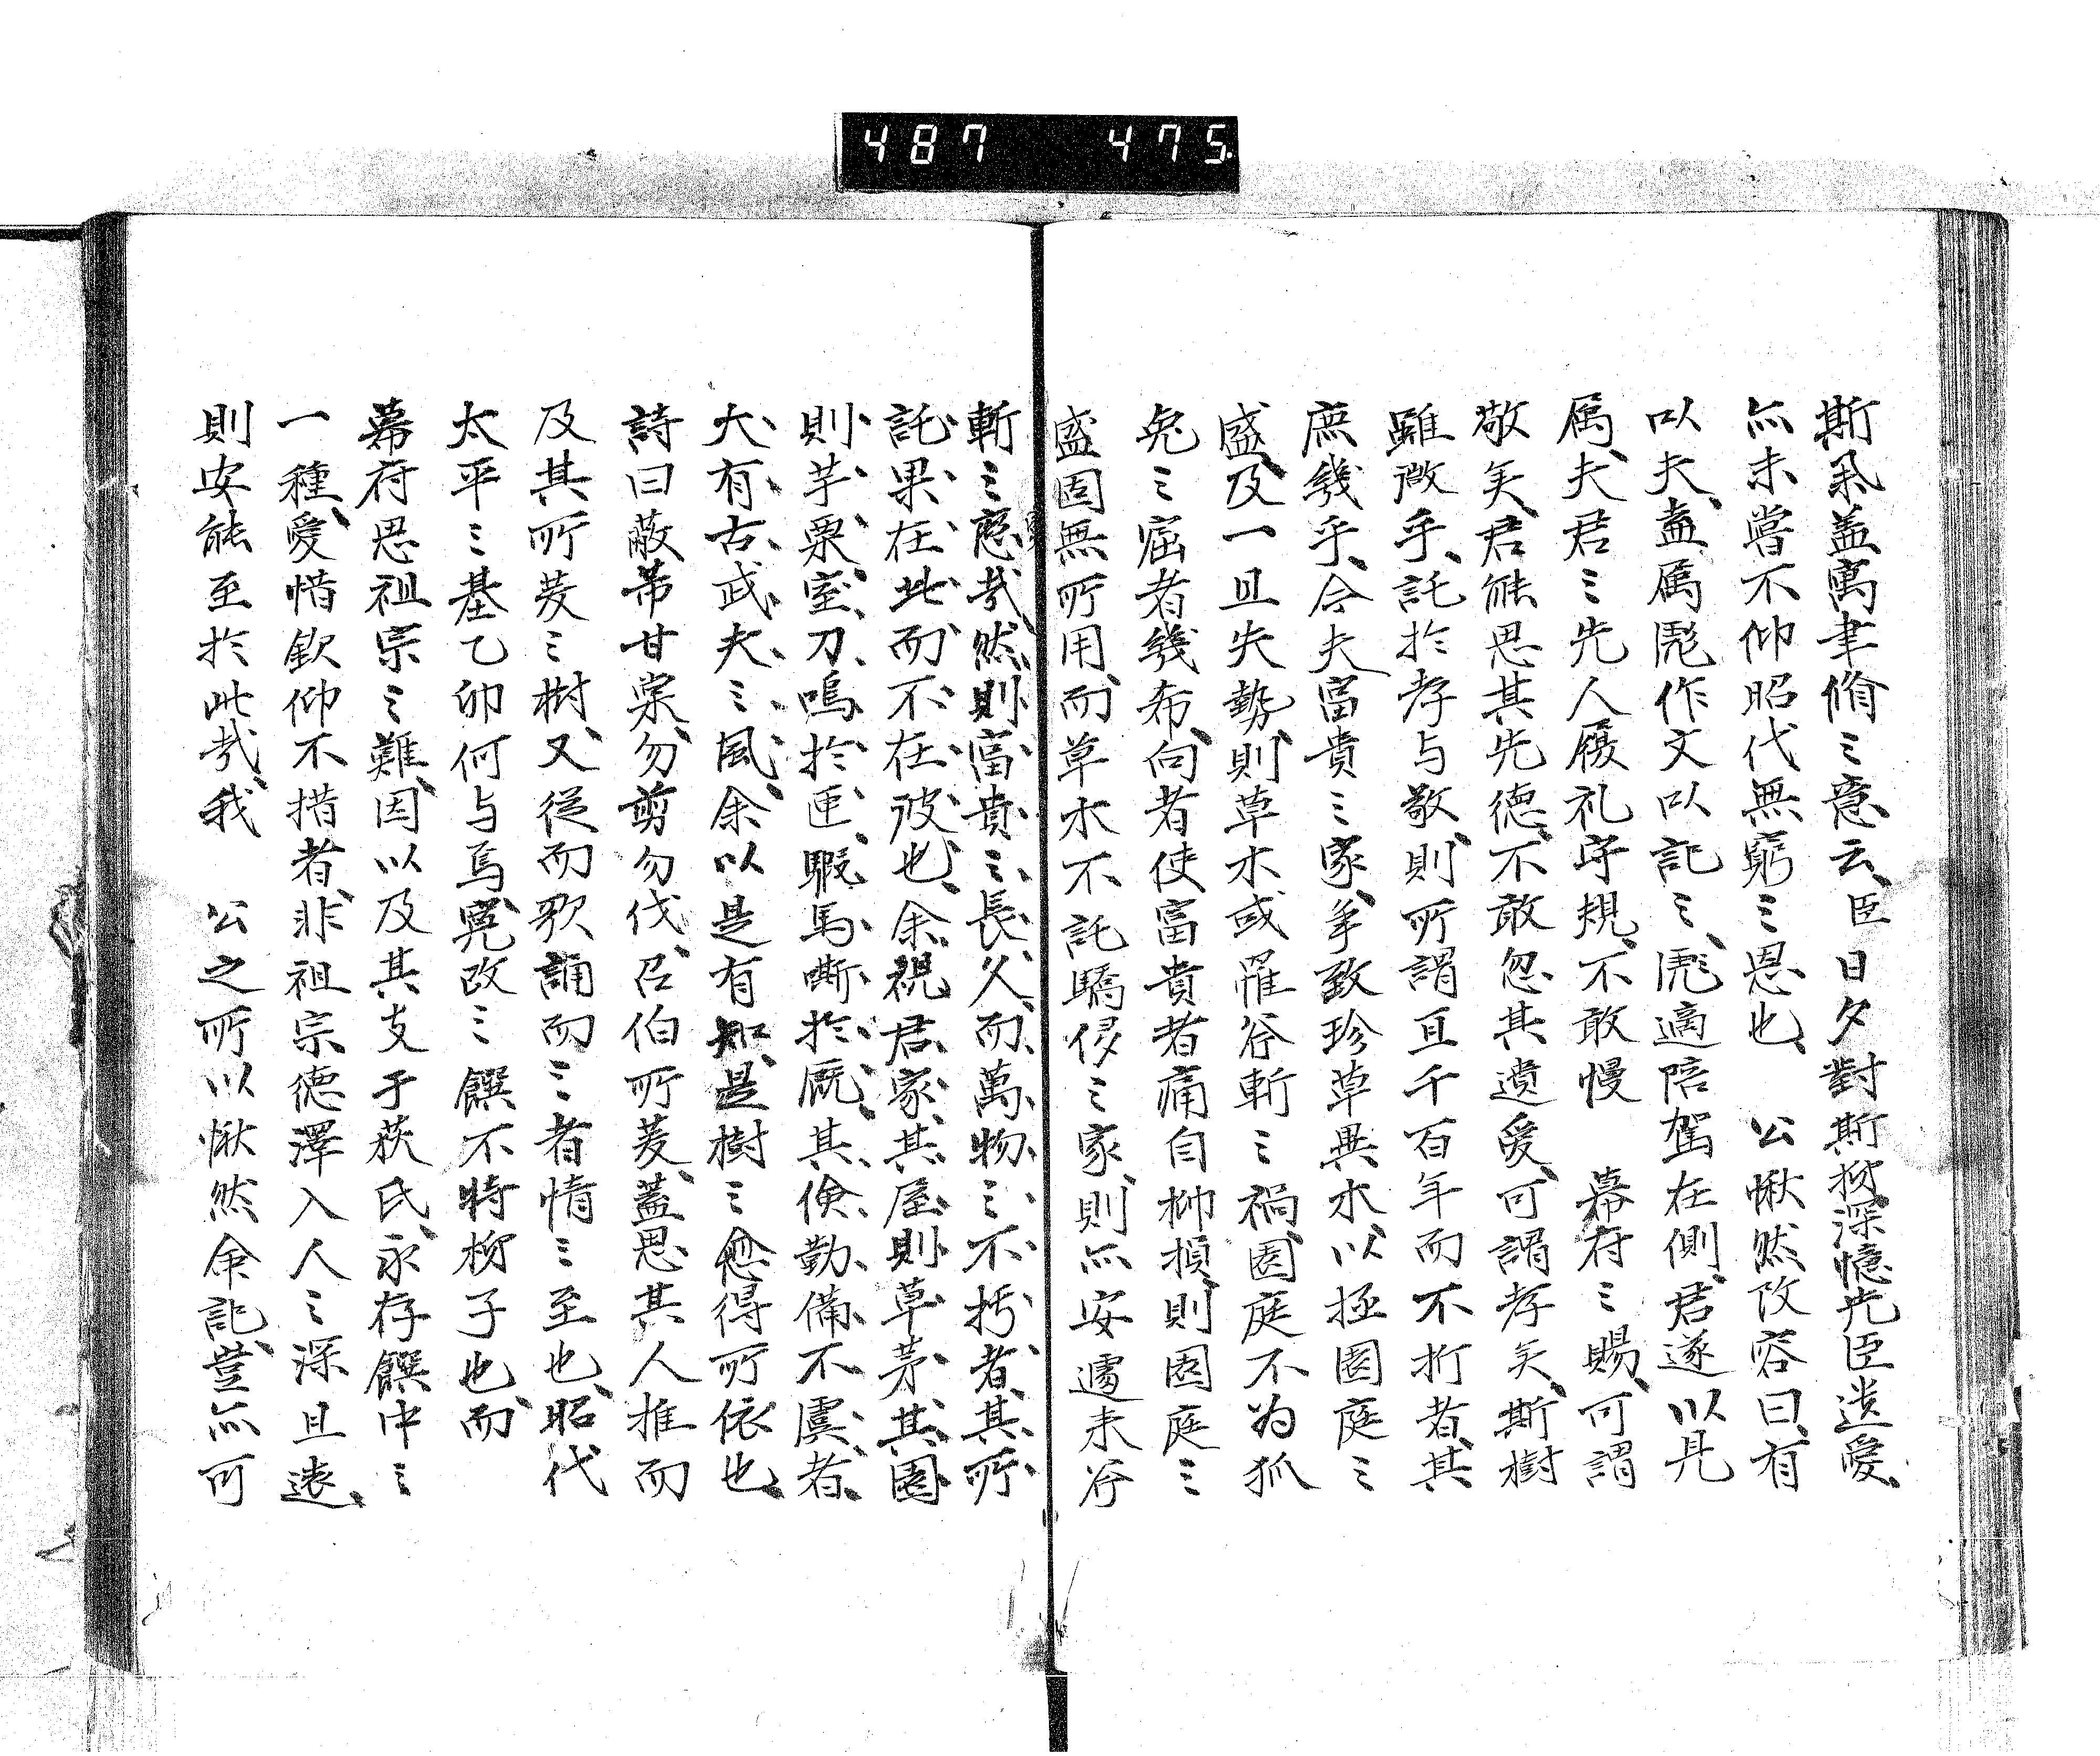 487 475
斯釆盖寓聿脩〻意云、臣日夕對斯桜、深憶先臣遺愛、
亦未嘗不仰昭代無窮〻恩也、　公愀然改容曰、有
以夫、盍属彪作文以記〻、彪適陪駕在側、君遂以見
属、夫君〻先人履礼守規、不敢慢　幕府〻賜、可謂
敬矣、君能思其先徳、不敢忽其遺愛、可謂孝矣、斯樹
雖微乎、託於孝与敬、則所謂亘千百年而不折者、其
庶幾乎、今夫富貴〻家、争致珍草異木、以極園庭〻
盛、及一旦失勢、則草木或罹斧斬〻禍、園庭不為狐
兔〻窟者幾希、向者使富貴者痛自抑損、則園庭〻
盛固無所用、而草木不託驕侈〻家、則亦安遽来斧
斬〻慼哉、然則富貴〻長久、而萬物〻不朽者、其所
託果在此而不在彼也、余視君家、其屋則草茅、其園
則芋栗、室刀鳴於匣、暇馬嘶於厩、其倹勤備不虞者、
大有古武夫〻風、余以是有知是樹〻愈得所依也、
詩曰蔽芾甘棠、勿剪勿伐、召伯所茇、蓋思其人推而
及其所茇〻樹、又従而歌誦而〻者情〻至也、昭代
太平〻基乙卯何与焉、寃改〻饌不特桜子也、而
幕府思祖宗〻難、因以及其支于萩氏、永存饌中〻
一種、愛惜欽仰不措者、非祖宗徳澤入人〻深且遠、
則安能至於此哉、我　公之所以愀然余記、豈亦可